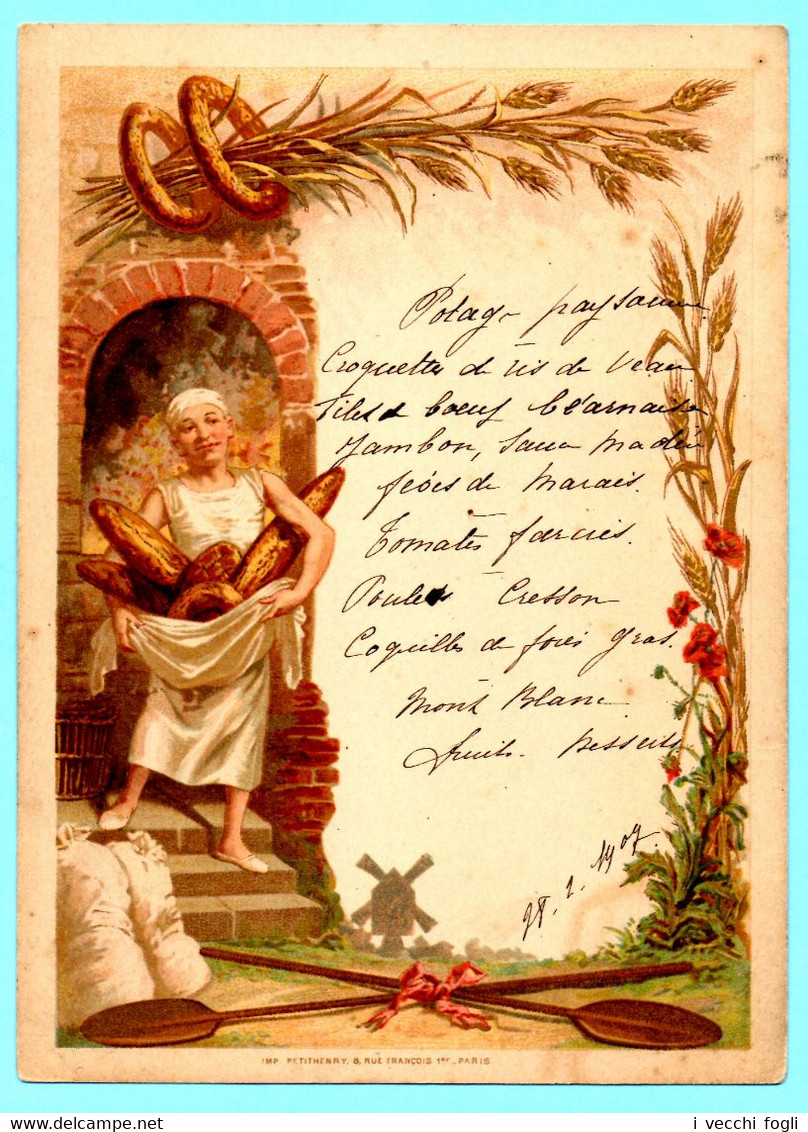 Potage paysanne
Croquettes de ris de Veau
Filet de boeuf béarnaise
Jambon, Sauce Madère
fèves de Marais.
Tomates farcies.
Poulets Cresson
Coquilles de foies gras.
Mont Blanc
fruits. Desserts
1907
IMP. PETITHENRY, 8, RUE FRANÇOIS 1er_PARIS.
delcampe.net
i vecchi fogli